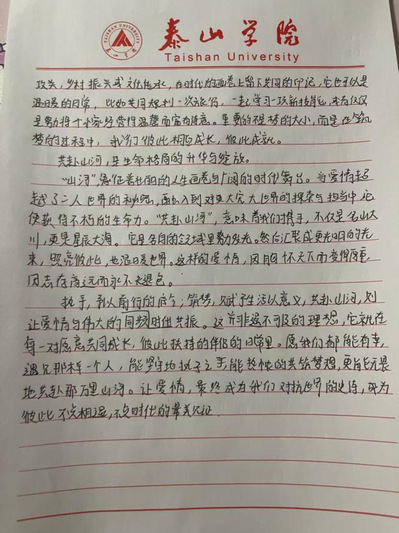 泰山学院
Taishan University
攻关，乡村振兴或文化传承，在时代的画卷上留下共同的印记，它也可以是
温暖的日常，比如共同规划一次旅行，一起学习一项新技能，
勤将十个家经营得温馨而富有。重要的是梦的大小，而是在筑
梦的过程中，我们彼此相互成长，彼此成就。
共赴山河，是生命格局的升华与绽放。
"山河"，象征着壮丽的人生画卷与广阔的时代舞台。当爱情超
越了二人世界的，而融入到对更大世界的探索与担当中，它
便获得不朽的生命力。"共赴山河"，意味着我们携手，不仅是名山大
川，更是星辰大海。它是各自的领域里勤发光，然后汇聚成更光明的未
来，照亮彼此，也温暖世界。这样的爱情，因胸怀天下而变得厚重
因志存高远而永不褪色。
执手，是人前行的底气；筑梦，赋予生活以意义，共赴山河，则
让爱情与伟大的时代共振。这并非遥不可及的理想，它就在
每一对愿意共同成长，彼此扶持的伴侣的日常里。愿我们都能有幸
遇见那样一个人，能坚守地执子之手，能共筑梦想，更能无畏
地共赴那万里山河。让爱情，最终成为我们对抗世界的，成为
彼此不，时代的最美见证